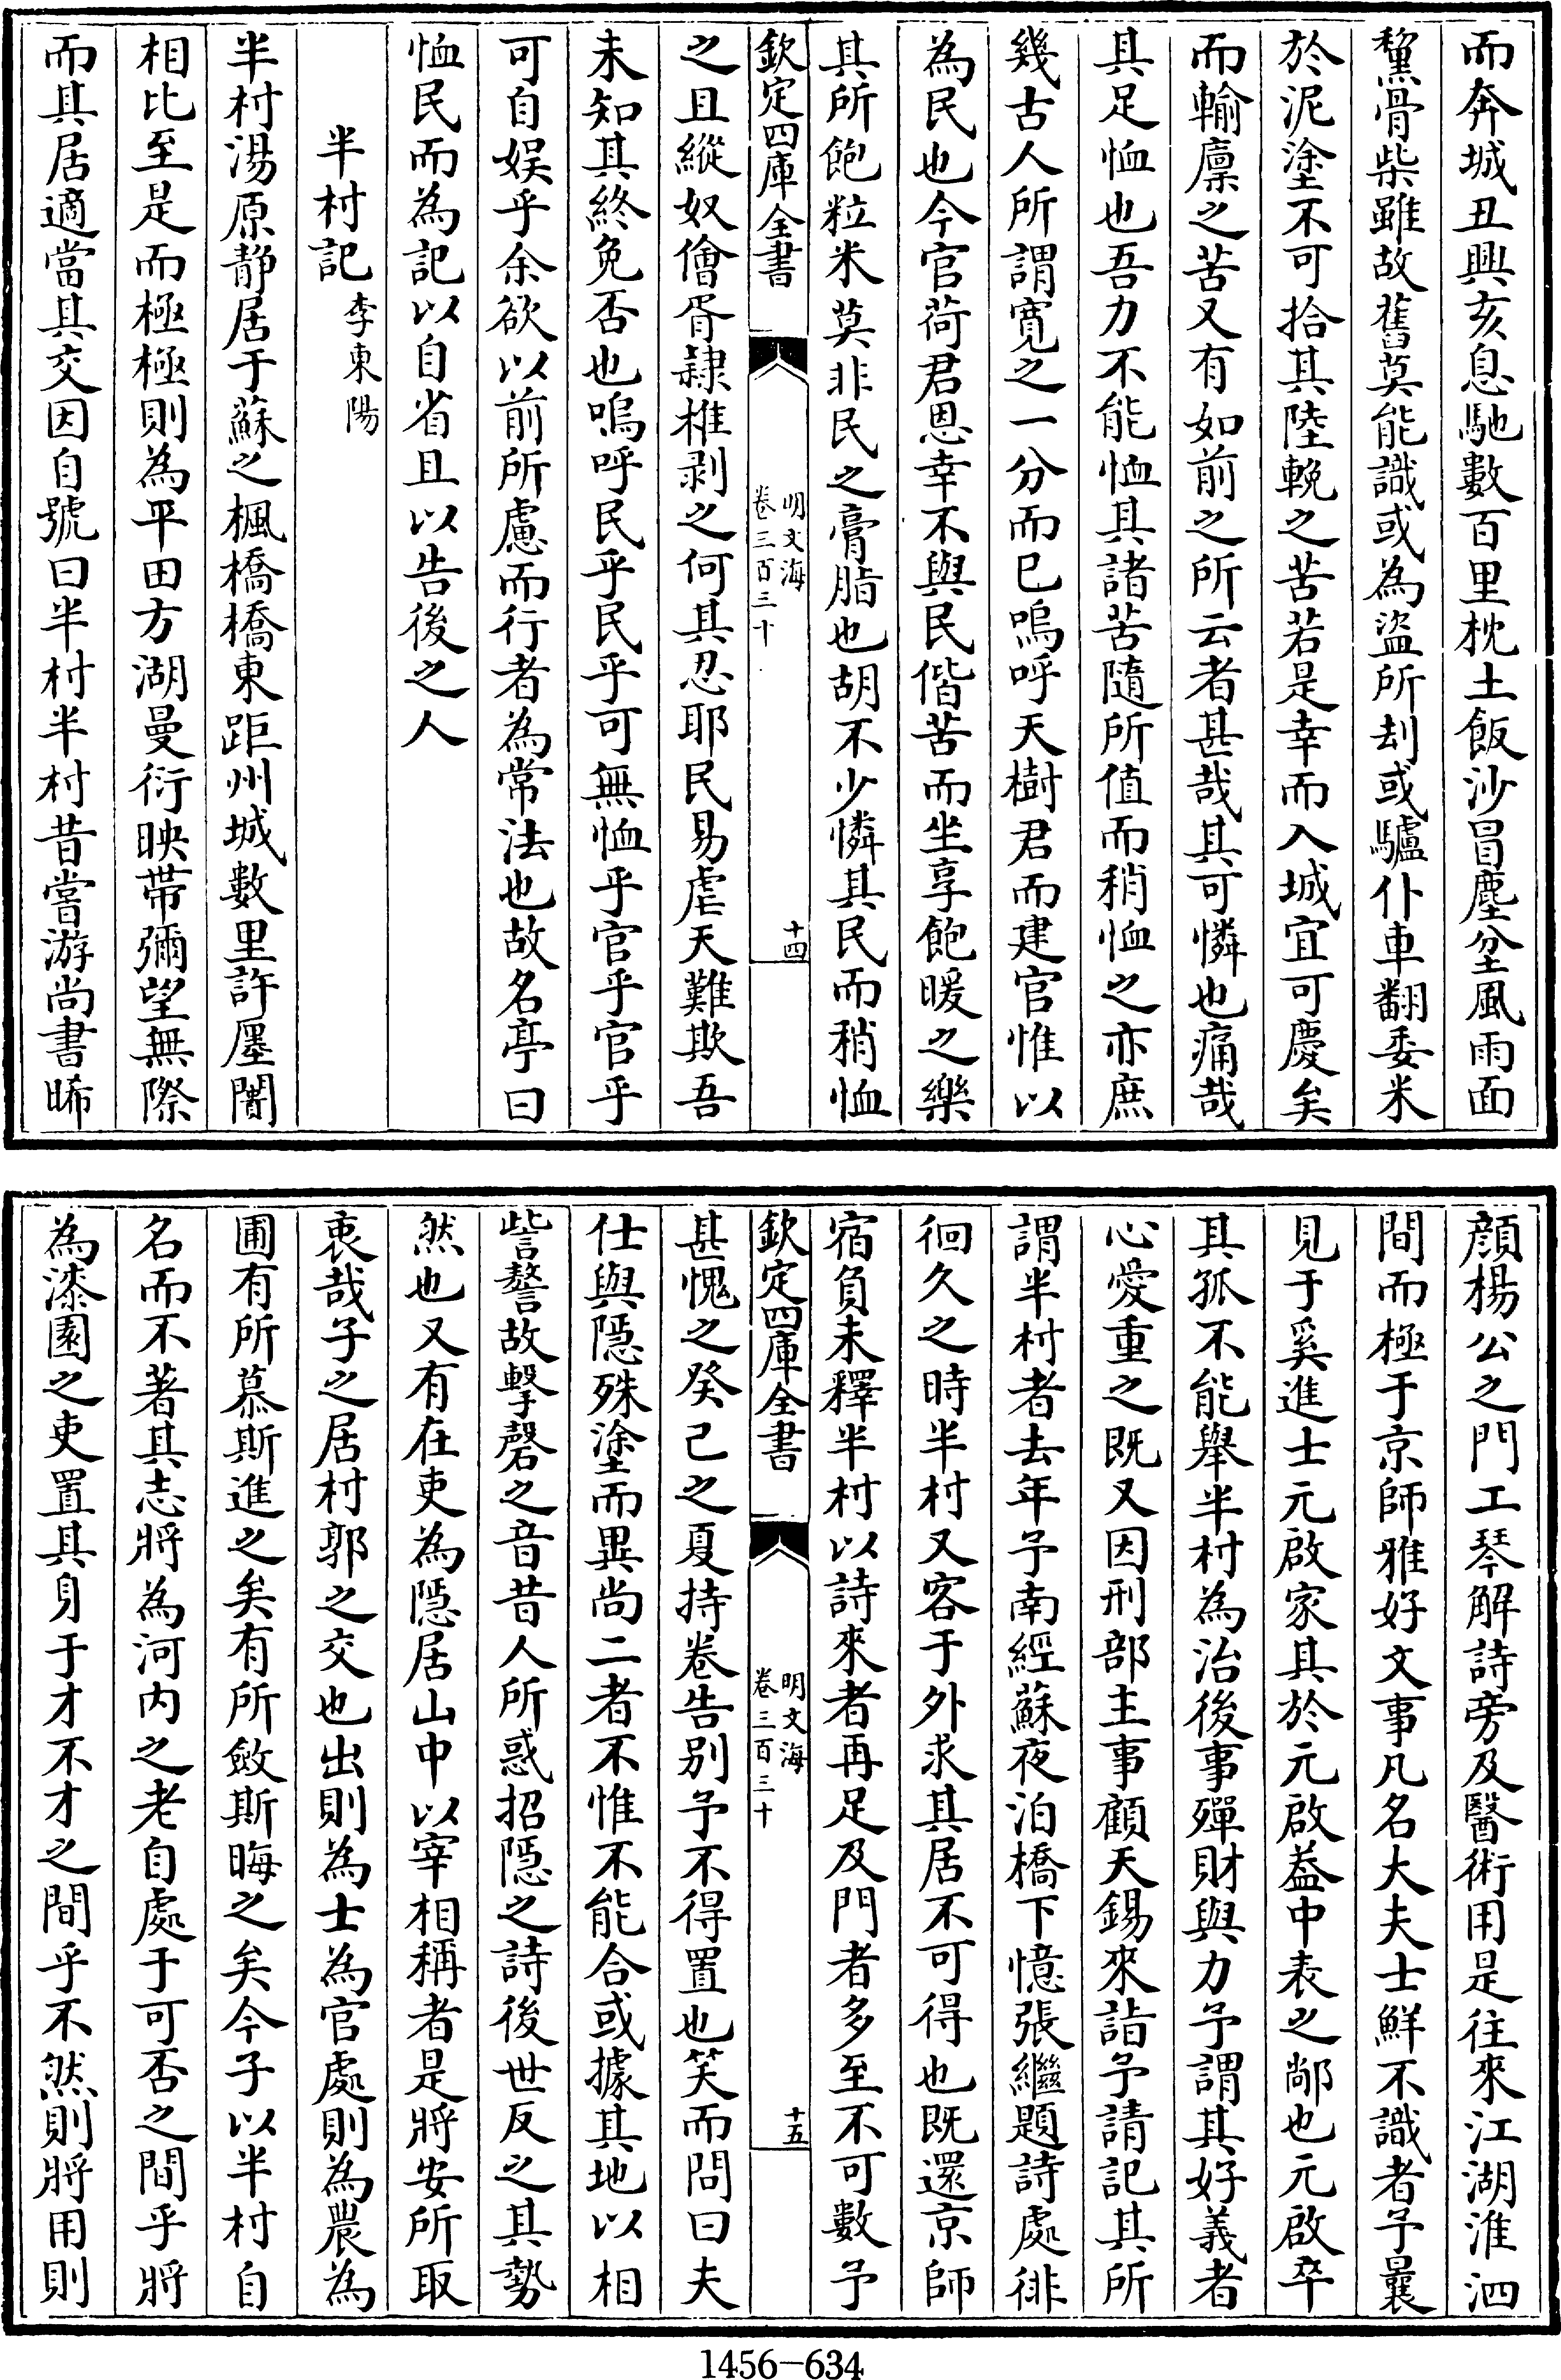 而奔城丑興亥息馳數百里枕土飯沙冒塵坌風雨面
黧骨柴雖故舊莫能識或為盜所刦或驢仆車翻委米
於泥塗不可拾其陸輓之苦若是幸而入城宜可慶矣
而輸廪之苦又有如前之所云者甚哉其可憐也痛哉
具足恤也吾力不能恤其諸苦隨所值而稍恤之亦庶
幾古人所謂寛之一分而已嗚呼天樹君而建官惟以
為民也今官荷君恩幸不與民偕苦而坐享飽暖之樂
其所飽粒米莫非民之膏脂也胡不少憐其民而稍恤
欽定四庫全書
明文海
卷三百三十
十四
之且縱奴儈胥隷椎剥之何其忍耶民易虐天難欺吾
未知其終免否也嗚呼民乎民乎可無恤乎官乎官乎
可自娱乎余欲以前所慮而行者為常法也故名亭曰
恤民而為記以自省且以告後之人
半村記 李東陽
半村湯原静居于蘇之楓橋橋東距州城數里許廛闠
相比至是而極極則為平田方湖曼衍映帶彌望無際
而其居適當其交因自號曰半村半村昔嘗游尚書晞
顔楊公之門工琴解詩旁及醫術用是往來江湖淮泗
間而極于京師雅好文事凡名大夫士鮮不識者予曩
見于奚進士元啟家其於元啟葢中表之鄗也元啟卒
其孤不能舉半村為治後事殫財與力予謂其好義者
心愛重之既又因刑部主事顧天錫來詣予請記其所
謂半村者去年予南經蘇夜泊橋下憶張繼題詩處徘
徊久之時半村又客于外求其居不可得也既還京師
宿負未釋半村以詩來者再足及門者多至不可數予
欽定四庫全書
明文海
卷三百三十
十五
甚愧之癸己之夏持卷告别予不得置也笑而問曰夫
仕與隱殊塗而異尚二者不惟不能合或據其地以相
訾謷故擊磬之音昔人所惑招隱之詩後世反之其勢
然也又有在吏為隱居山中以宰相稱者是將安所取
衷哉子之居村郭之交也出則為士為官處則為農為
圃有所慕斯進之矣有所斂斯晦之矣今子以半村自
名而不著其志將為河内之老自處于可否之間乎將
為漆園之吏置其身于才不才之間乎不然則將用則
1456-634